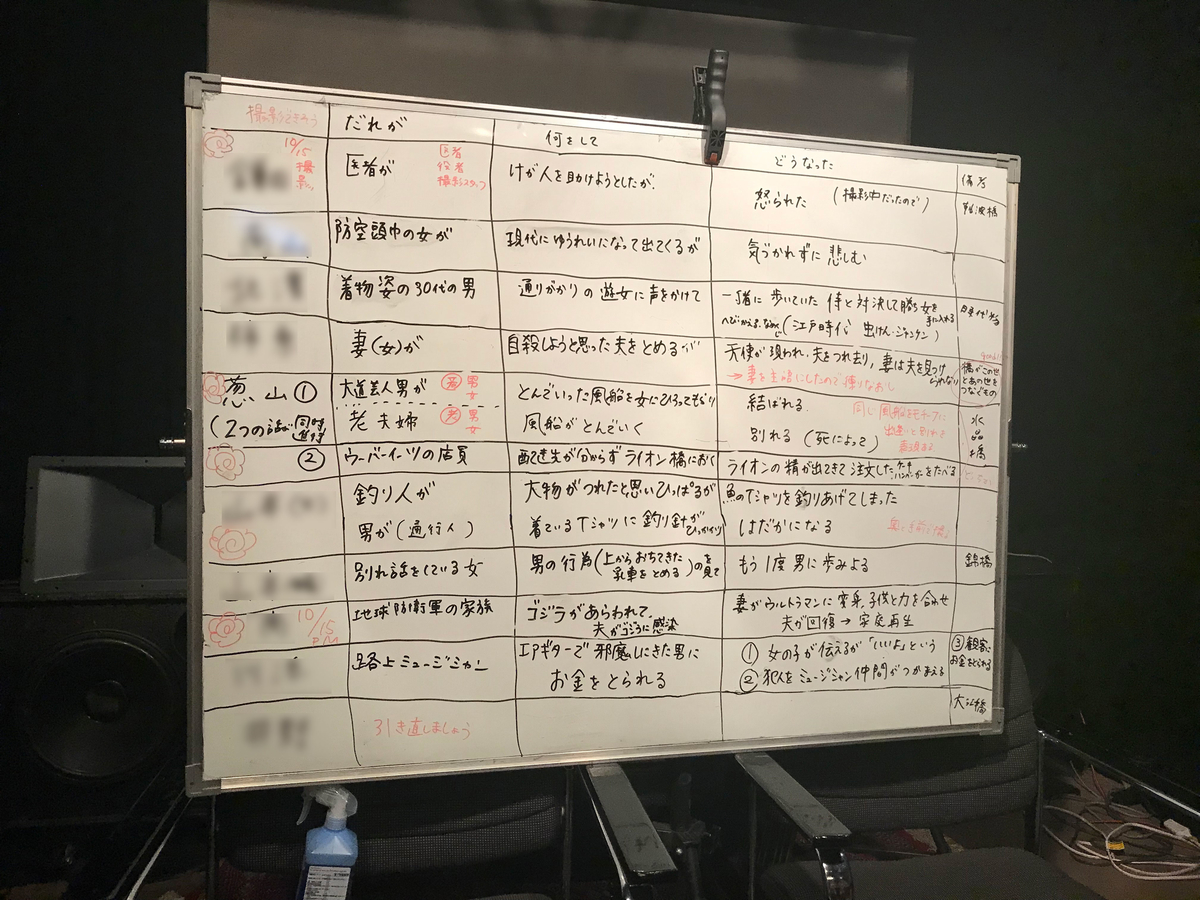 撮影できそう
だれが
何をして
どうなった
備考
10/15
撮影
医者が
医者
役者
撮影スタッフ
けが人を助けようとしたが、
怒られた (撮影中だったので)
難波橋
防空頭巾の女が
現代にゆうれいになって出てくるが
気づかれずに悲しむ
着物姿の30代の男
通りがかりの遊女に声をかけて
一緒に歩いていた侍と対決して勝ち女を
手に入れる
(江戸時代 虫けん・ジャンケン)
妻(女)が
自殺しようと思った夫をとめるが
天使が現われ、夫をつれ去り、妻は夫を見つけ
られない
→妻を主語にしたので練りなおし
橋がこの世
とあの世を
つなぐもの
葱山①
大道芸人男が
男
女
とんでいった風船を女にひろってもらい
結ばれる
同じ風船をモチーフに
出逢いと別れを
(2つの話が同時進行
老夫婦
老 男
女
風船がとんでいく
別れる (死によって)
水
晶
橋
②
ウーバーイーツの店員
配達先が分からずライオン橋におく
ライオンの精が出てきて注文した
をたべる
釣り人が
大物がつれたと思いひっぱるが
魚のTシャツを釣りあげてしまった
男が(通行人)
着ているTシャツに釣り針が
ひっかかり
はだかになる
別れ話をしている女
男の行為(上からおちてきた
乳車をとめる)のを見て
もう1度男に歩みよる
錦橋
10/15
PM
地球防衛軍の家族
ゴジラがあらわれて、
夫がゴジラに感染
妻がウルトラマンに変身、子供と力を合わせ
夫が回復→家庭再生
路上ミュージシャン
エアギターで邪魔しにきた男に
お金をとられる
①女の子が伝えるが「いいよ」という
②犯人をミュージシャン仲間がつかまえる
③観客に
お金をとられる
引き直しましょう